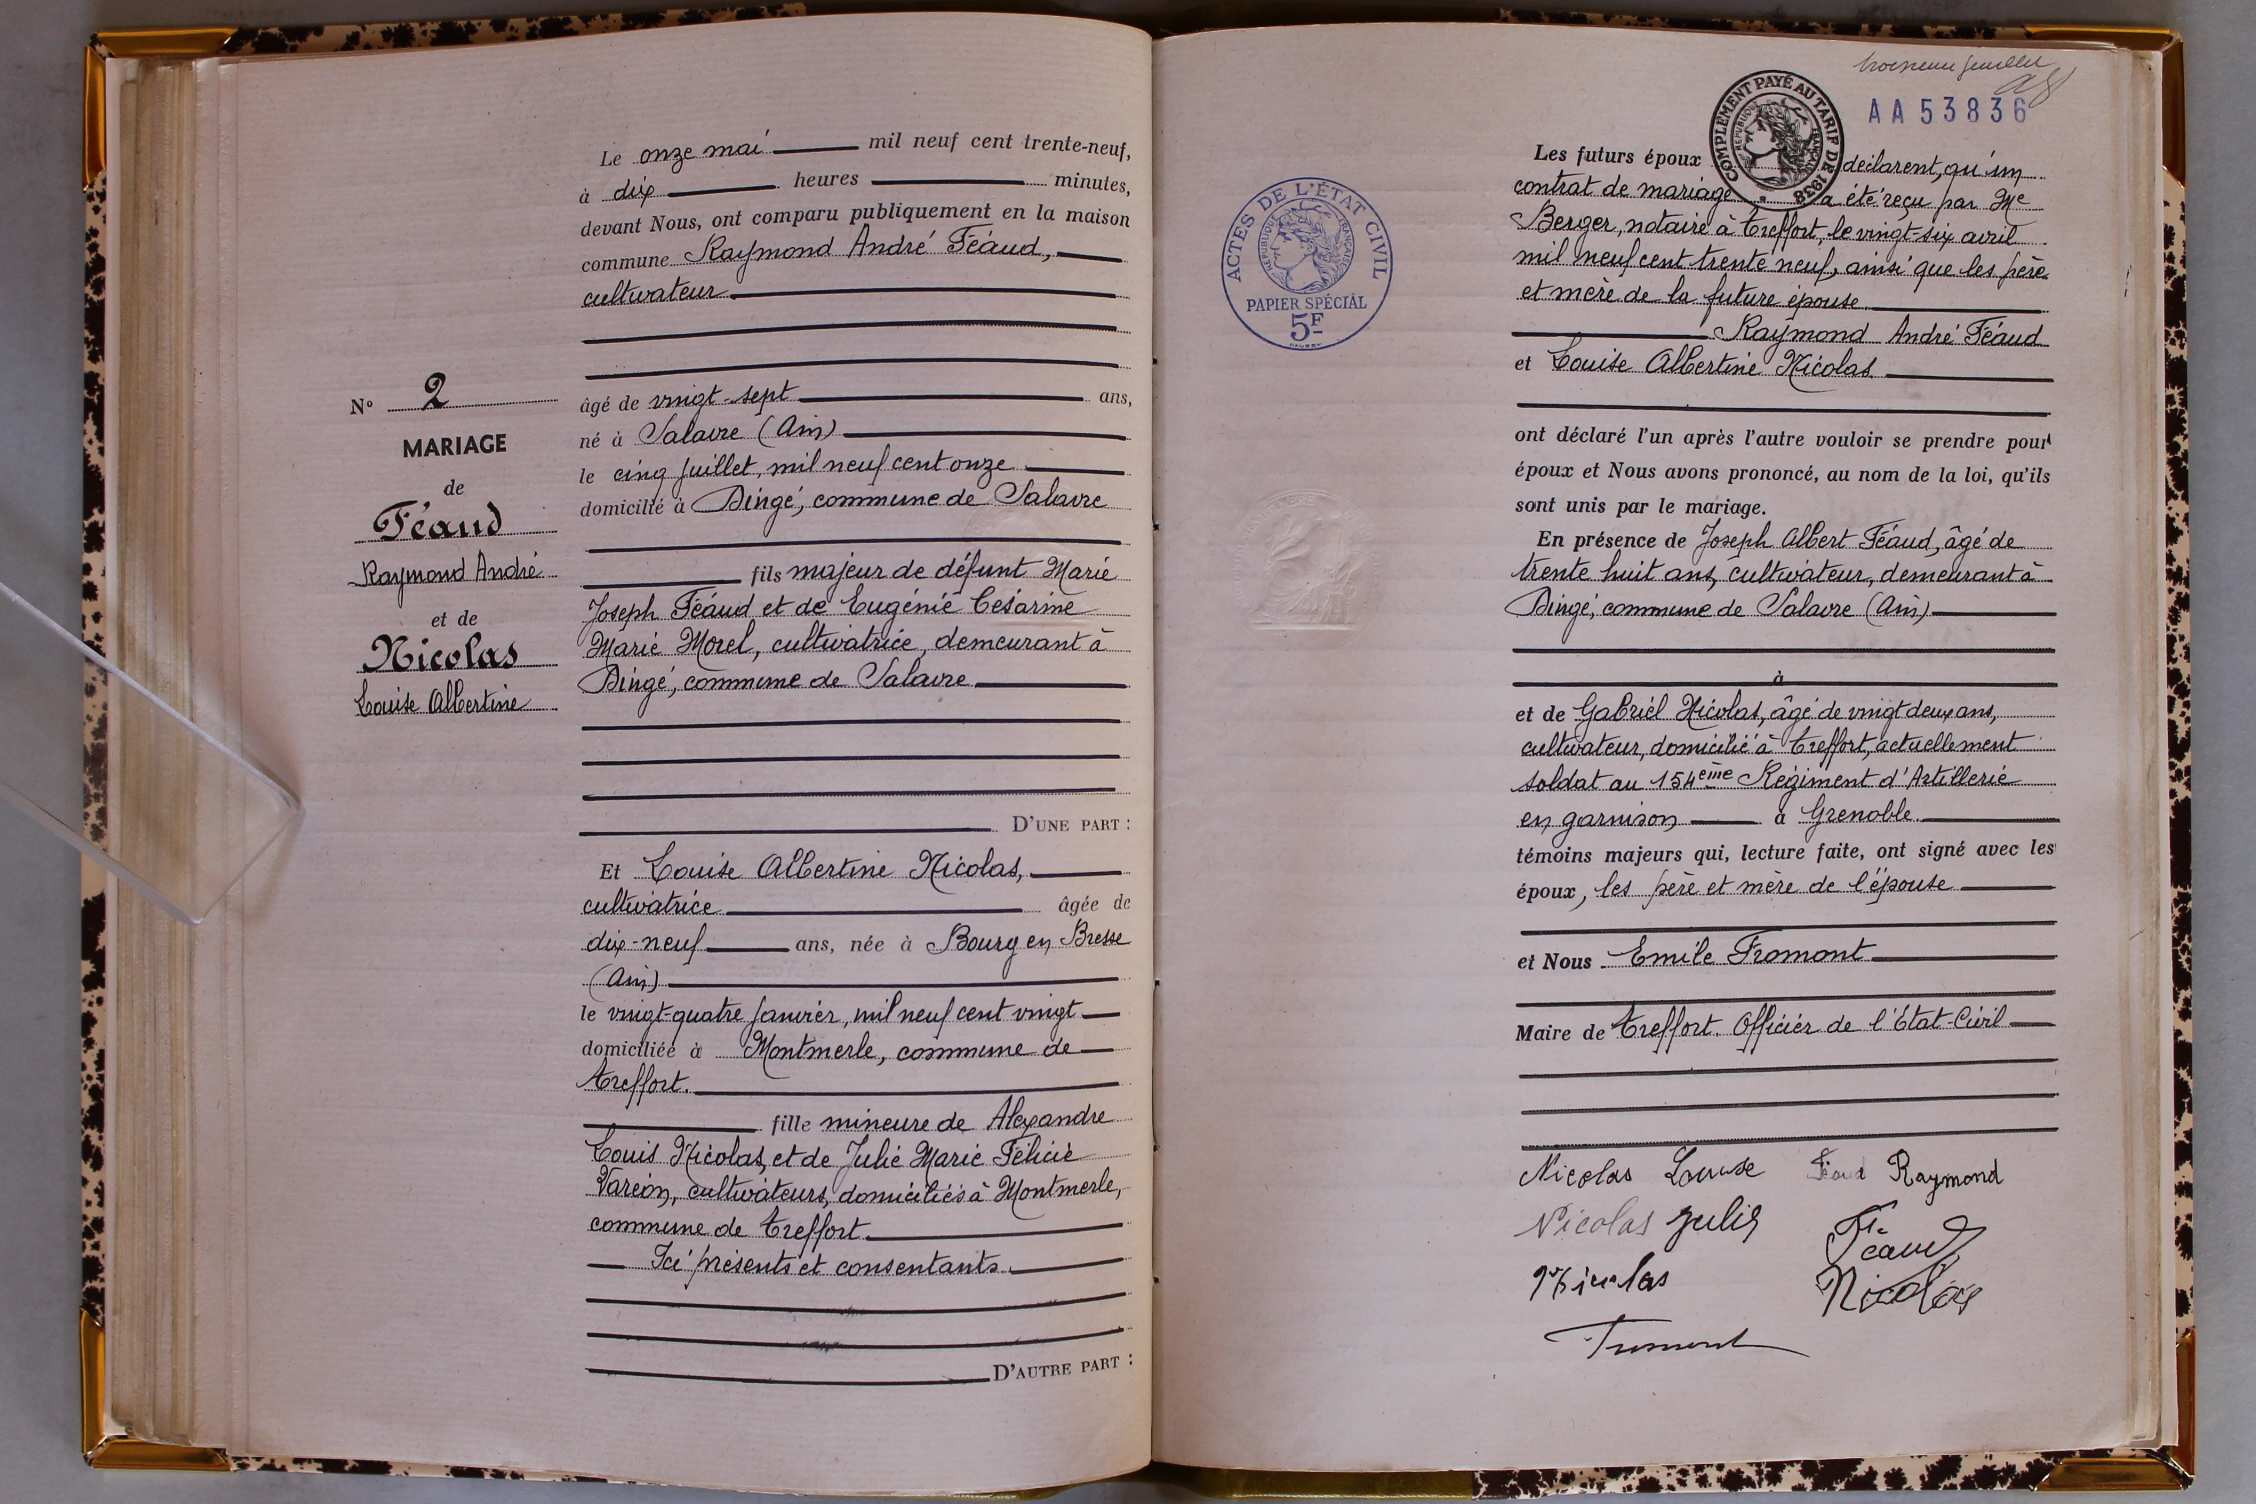 Le onze mai mil neuf cent trente-neuf,
à dix heures minutes,
devant Nous, ont comparu publiquement en la maison
commune Raymond André Féaud,
cultivateur
âgé de vingt-sept ans,
né à Salavre (Ain)
le cinq juillet, mil neuf cent onze
domicilié à Dingé, commune de Salavre
fils majeur de défunt Marie
Joseph Féaud et de Eugénie Césarine
Marie Morel, cultivatrice, demeurant à
Dingé, commune de Salavre
D'UNE PART :
Nº 2
MARIAGE
de
Féaud
Raymond André
et de
Nicolas
Louise Albertine
Et Louise Albertine Nicolas,
cultivatrice âgée de
dix-neuf ans, née à Bourg en Bresse
(Ain)
le vingt-quatre janvier, mil neuf cent vingt
domiciliée à Montmerle, commune de
Treffort.
fille mineure de Alexandre
Louis Nicolas, et de Julie Marie Félicie
Varéon, cultivateurs, domiciliés à Montmerle,
commune de Treffort
Ici présents et consentants.
D'AUTRE PART :
AA53836
COMPLÉMENT PAYÉ AU TARIF DE 1938
RÉPUBLIQUE FRANÇAISE
ACTES DE L'ÉTAT CIVIL
RÉPUBLIQUE FRANÇAISE
PAPIER SPÉCIAL
5F
Les futurs époux déclarent, qu'un
contrat de mariage a été reçu par Me
Berger, notaire à Treffort, le vingt-six avril
mil neuf cent trente neuf, ainsi que les père
et mère de la future épouse
Raymond André Féaud
et Louise Albertine Nicolas
ont déclaré l'un après l'autre vouloir se prendre pour
époux et Nous avons prononcé, au nom de la loi, qu'ils
sont unis par le mariage.
En présence de Joseph Albert Féaud, âgé de
trente huit ans, cultivateur, demeurant à
Dingé, commune de Salavre (Ain)
à
et de Gabriel Nicolas, âgé de vingt deux ans,
cultivateur, domicilié à Treffort, actuellement
soldat au 154ème Régiment d'Artillerie
en garnison à Grenoble.
témoins majeurs qui, lecture faite, ont signé avec les
époux, les père et mère de l'épouse
et Nous Emile Fromont
Maire de Treffort. Officier de l'Etat-Civil
Nicolas Louise Féaud Raymond
Nicolas Julie
Féaud
Nicolas
Nicolas
Fromont